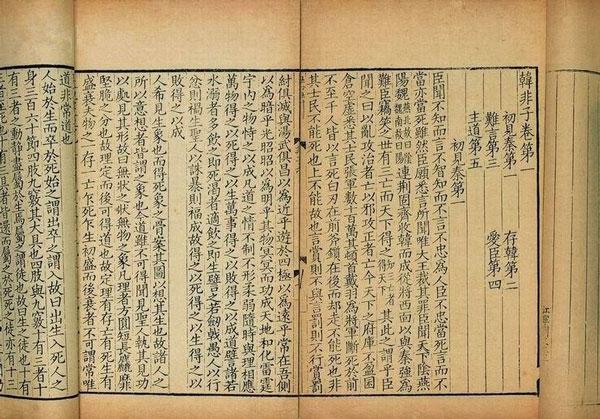 韓非子卷第一
初見秦第一　存韓第二
難言第三　愛臣第四
主道第五
初見秦第一
臣聞不知而言不智知而不言不忠為人臣不忠當死言而不
當亦當死雖然臣願悉言所聞唯大王裁其罪臣聞天下陰燕
陽魏燕北故曰陰魏南故曰陽連荊固齊收韓而成從將西面以與秦強為
難臣竊笑之世有三亡而天下得之其此之謂乎臣
聞之曰以亂攻治者亡以邪攻正者亡今天下之府庫不盈囷
倉空虛悉其士民張軍數十百萬其頓首戴羽為將軍斷死於前
不至千人皆以言死白刃在前斧鑕在後而却走不能死也非
其士民不能死也上不能故也言賞則不與言罰則不行賞罰
紂俱滅與湯武俱昌以為近乎遊於四極以為遠乎常在吾側
以為暗乎其光昭昭以為明乎其物冥冥而功成天地和化雷霆
宇內之物恃之以成凡道之情不制不形柔弱隨時與理相應
萬物得之以死得之以生萬事得之以敗得之以成道譬諸若
水溺者多飲之即死渴者適飲之即生譬之若劍戟愚人以行
忿則禍生聖人以誅暴則福成故得之以死得之以生得之以
敗得之以成
人希見生象也而得死象之骨案其圖以想其生也故諸人之
所以意想者皆謂之象也今道雖不可得聞見聖人執其見功
以處見其形故曰無狀之狀無物之象凡理者方圓短長麤靡
堅脆之分也故理定而後可得道也故定理有存亡有死生有
盛衰夫物之一存一亡乍死乍生初盛而後衰者不可謂常唯
道非常道也
人始於生而卒於死始之謂出卒之謂入故曰出生入死人之
身三百六十節四肢九竅其大具也四肢與九竅十有三者十
有三者之動靜盡屬於生焉屬之謂徒也故曰生之徒也十有
三者至死也十有三具者皆還而屬之於死死之徒亦有十三